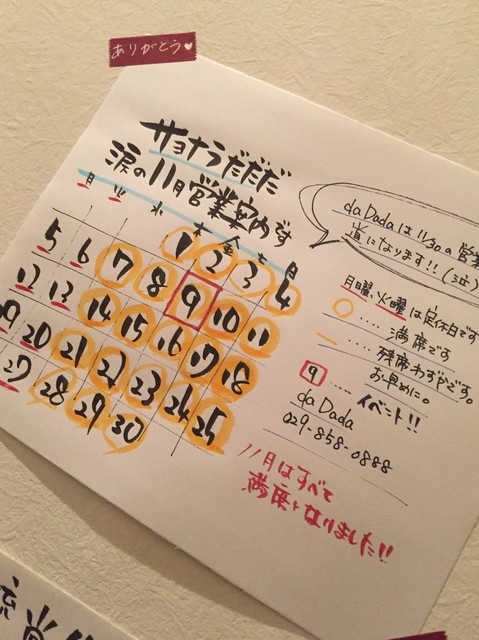 ありがとう♥
サヨナラだだだ
涙の11月営業案内です
daDadaは11/30の営業
道になります!!(泣)
月 火 水 木 金 土 日
1 2 3 4
5 6 7 8 9 10 11
12 13 14 15 16 17 18
19 20 21 22 23 24 25
27 28 29 30
月曜、火曜は定休日です
○‥‥満席です
―‥‥残席わずかです。
お早めに。
9‥‥‥イベント!!
daDada
029-858-0888
11月はすべて
満席となりました!!